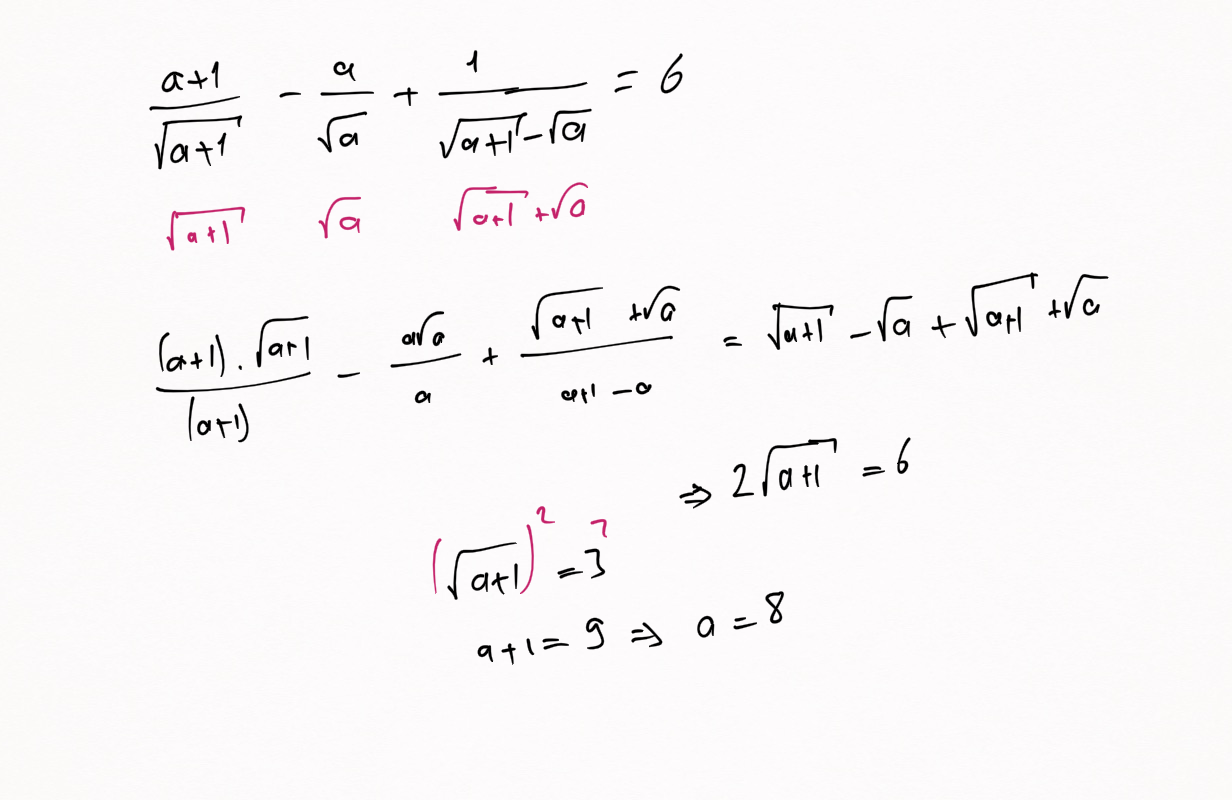 (a+1)/√(a+1) - a/√a + 1/(√(a+1) - √a) = 6
√(a+1) √a √(a+1) + √a
(a+1).√(a+1)/(a+1) - a√a/a + (√(a+1) + √a)/(a+1-a) = √(a+1) - √a + √(a+1) + √a
⇒ 2√(a+1) = 6
(√(a+1))² = 3²
a+1 = 9 ⇒ a = 8